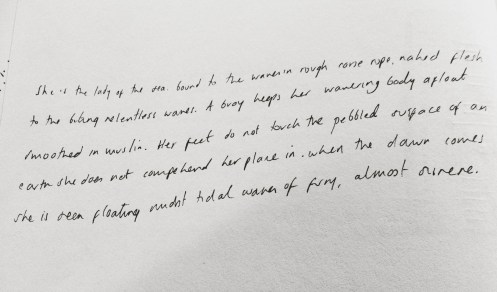 She is the lady of the sea. bound to the waves in rough rope, naked flesh
to the biting relentless waves. A buoy keeps her wavering body afloat
smoothed in muslin. Her feet do not touch the pebbled surface of an
earth she does not comprehend her place in. when the dawn comes
she is seen floating midst tidal waves of fury, almost serene.